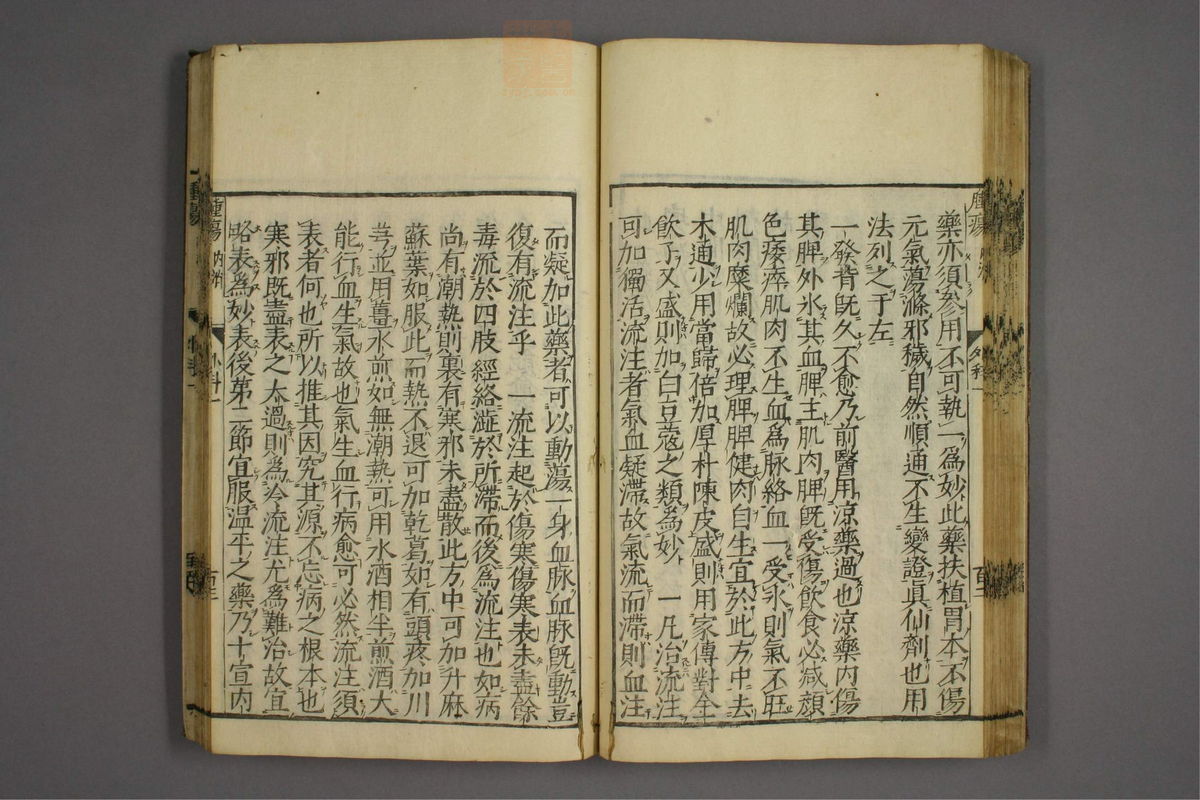 藥亦須參用不可執一爲妙此藥扶植胃本不傷
元氣蕩滌邪穢自然順通不生變證眞仙劑也用
法列之于左
一發背旣久不愈乃前醫用涼藥過也涼藥內傷
其脾外氷其血脾主肌肉脾旣受傷飮食必减顏
色痿瘁肌肉不生血爲脉絡血一受氷則氣不旺
肌肉糜爛故必理脾脾健肉自生宜於此方中去
木通少用當歸倍加厚朴陳皮盛則用家傳對金
飮子又盛則加白豆蔻之類爲妙 一凡治流注
可加獨活流注者氣血疑滯故氣流而滯則血注
而疑加此藥者可以動蕩一身血脉血脉旣動豈
復有流注乎 一流注起於傷寒傷寒表未盡餘
毒流於四肢經絡澁於所滯而後爲流注也如病
尚有潮熱則裏有寒邪未盡散此方中可加升麻
蘇葉如服此而熱不退可加乾葛如有頭疼加川
芎並用薑水煎如無潮熱可用水酒相半煎酒大
能行血生氣故也氣生血行病愈可必然流注須
表者何也所以推其因究其源不忘病之根本也
寒邪旣盡表之太過則爲冷流注尤爲難治故宜
略表爲妙表後第二節宜服温平之藥乃十宣內
腫瘍 內消
外科一
百三